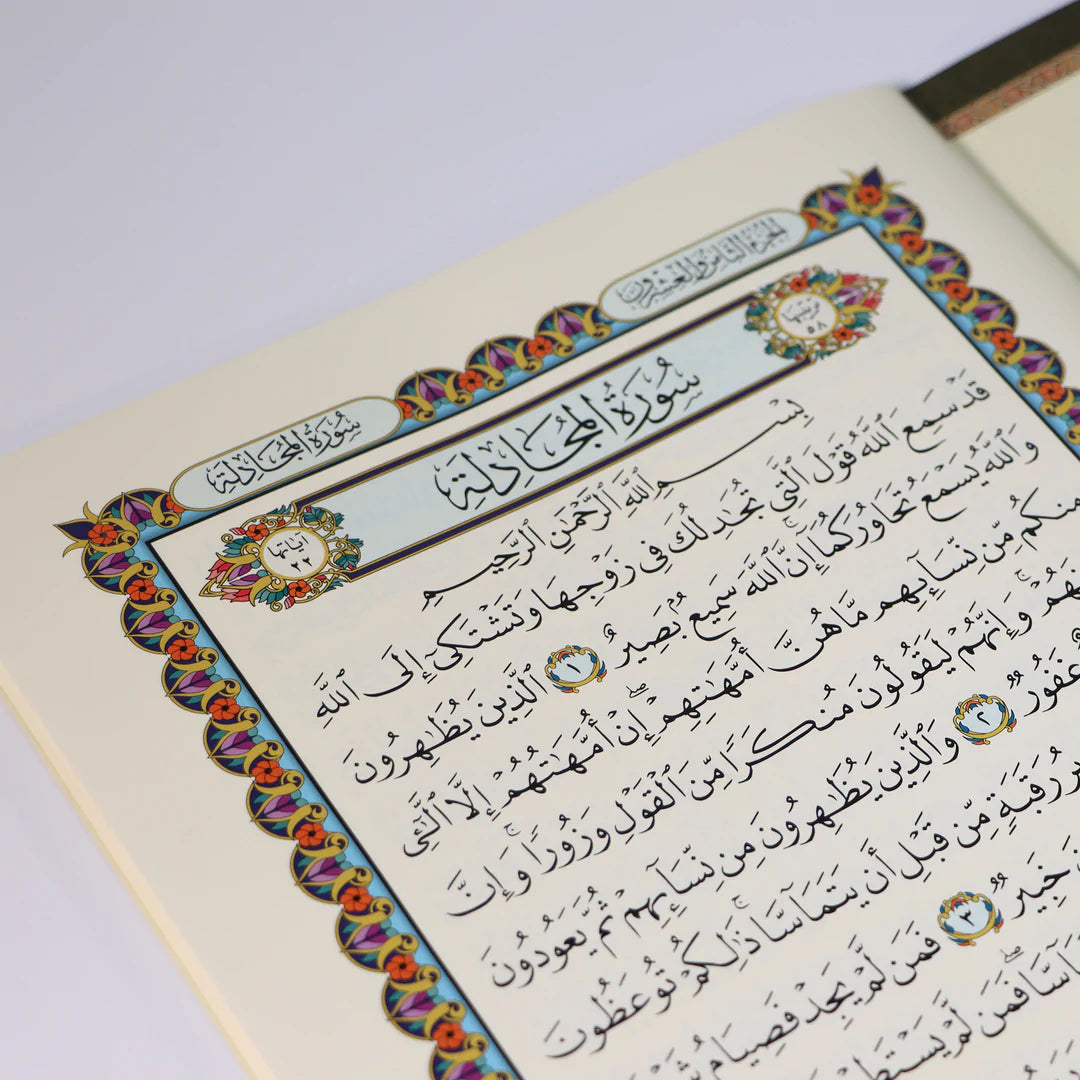 الجزء الثامن والعشرون
سُورَةُ المُجَادلَة
ترتيبها
٥٨
سُورَةُ المُجَادلَة
آياتها
٢٢
بِسْمِ ٱللَّهِ ٱلرَّحْمَٰنِ ٱلرَّحِيمِ
قَدْ سَمِعَ ٱللَّهُ قَوْلَ ٱلَّتِى تُجَٰدِلُكَ فِى زَوْجِهَا وَتَشْتَكِىٓ إِلَى ٱللَّهِ
وَٱللَّهُ يَسْمَعُ تَحَاوُرَكُمَآ إِنَّ ٱللَّهَ سَمِيعٌۢ بَصِيرٌ ١ ٱلَّذِينَ يُظَٰهِرُونَ
مِنكُم مِّن نِّسَآئِهِم مَّا هُنَّ أُمَّهَٰتِهِمْ ۖ إِنْ أُمَّهَٰتُهُمْ إِلَّا ٱلَّٰٓـِٔى
وَإِنَّهُمْ لَيَقُولُونَ مُنكَرًا مِّنَ ٱلْقَوْلِ وَزُورًا ۚ وَإِنَّ
غَفُورٌ ٢ وَٱلَّذِينَ يُظَٰهِرُونَ مِن نِّسَآئِهِمْ ثُمَّ يَعُودُونَ
رَقَبَةٍ مِّن قَبْلِ أَن يَتَمَآسَّا ۚ ذَٰلِكُمْ تُوعَظُونَ
خَبِيرٌ ٣ فَمَن لَّمْ يَجِدْ فَصِيَامُ
فَمَن لَّمْ